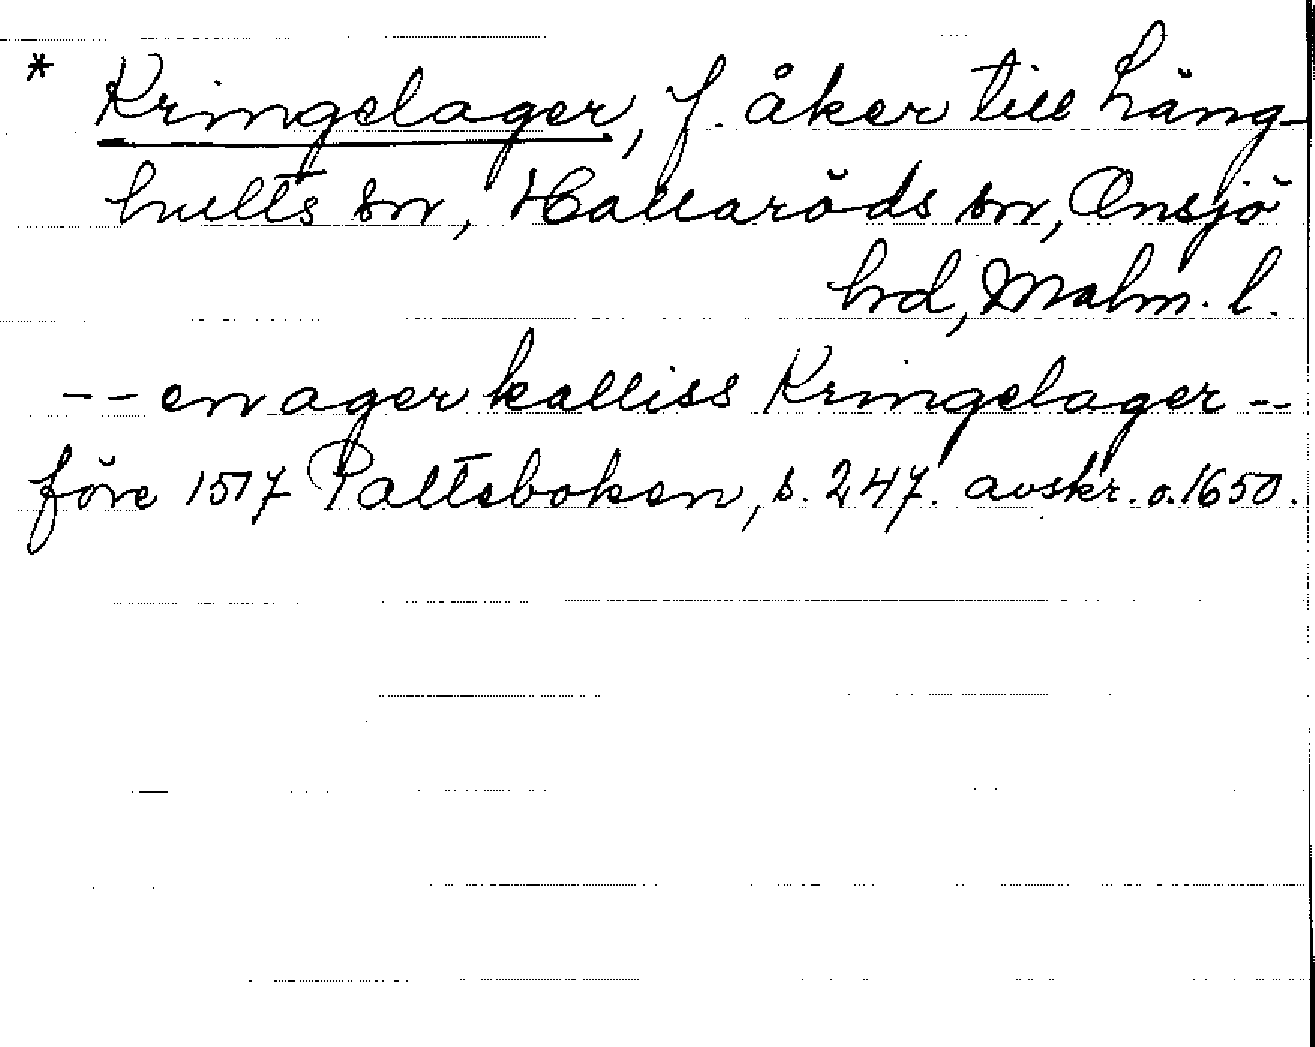 * Kringelager, f. åker till Läng-
hults sn, Hallaröds sn, Onsjö
hrd, Malm. l.
-- en ager kalliss Kringelager --
före 1517 Paltteboken, s. 247. avskr. o. 1650.